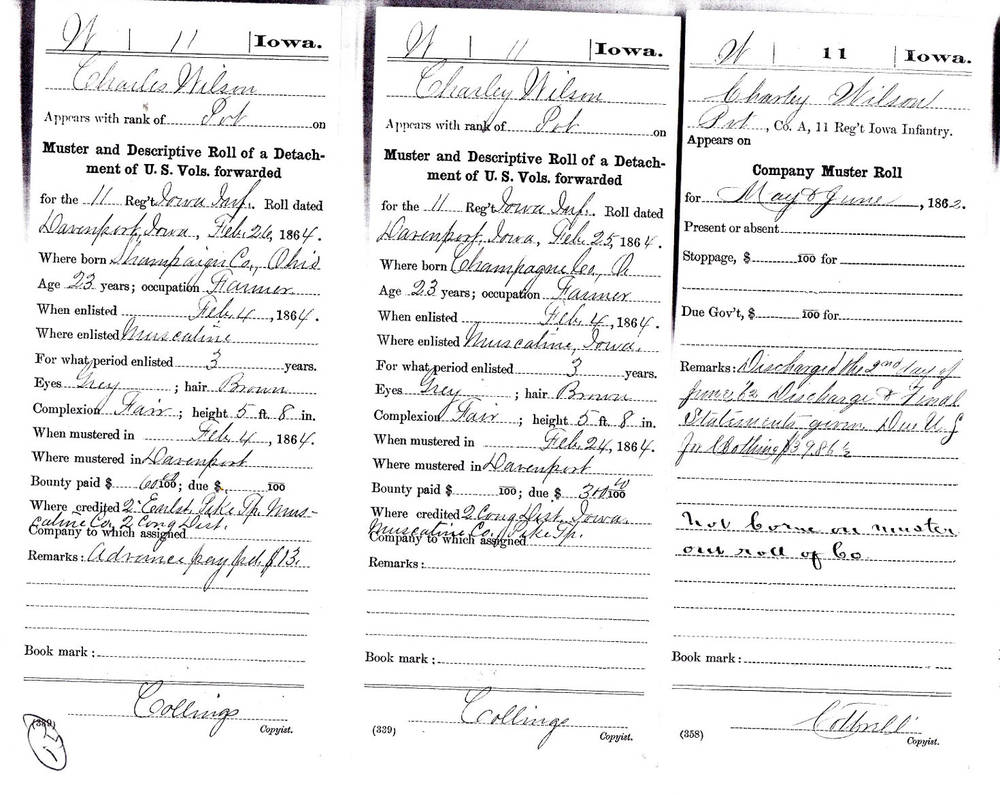 W | 11 | Iowa.
Charles Wilson
Appears with rank of Pvt on
Muster and Descriptive Roll of a Detach-
ment of U. S. Vols. forwarded
for the 11 Reg't Iowa Inf. Roll dated
Davenport, Iowa, Feb. 26, 1864.
Where born Shampaign Co., Ohio
Age 23 years; occupation Farmer
When enlisted Feb. 4, 1864.
Where enlisted Muscatine
For what period enlisted 3 years.
Eyes Grey; hair Brown
Complexion Fair; height 5 ft. 8 in.
When mustered in Feb. 4, 1864.
Where mustered in Davenport
Bounty paid $ 60 100; due $ 100
Where credited 2 Pike Tp. Mus-
catine Co, 2 Cong Dist.
Company to which assigned
Remarks: Advance pay pd. $13.
Book mark:
Collings
(339) Copyist.
15
W | 11 | Iowa.
Charley Wilson
Appears with rank of Pvt on
Muster and Descriptive Roll of a Detach-
ment of U. S. Vols. forwarded
for the 11 Reg't Iowa Inf. Roll dated
Davenport, Iowa, Feb. 25, 1864.
Where born Champagne Co., O
Age 23 years; occupation Farmer
When enlisted Feb. 4, 1864.
Where enlisted Muscatine, Iowa.
For what period enlisted 3 years.
Eyes Grey; hair Brown
Complexion Fair; height 5 ft. 8 in.
When mustered in Feb. 24, 1864.
Where mustered in Davenport
Bounty paid $ 100; due $ 300 100
Where credited 2 Cong Dist. Iowa.
Muscatine Co., Pike Tp.
Company to which assigned
Remarks:
Book mark:
Collings
(339) Copyist.
W | 11 | Iowa.
Charley Wilson
Pvt, Co. A, 11 Reg't Iowa Infantry.
Appears on
Company Muster Roll
for May & June, 1862.
Present or absent
Stoppage, $ 100 for
Due Gov't, $ 100 for
Remarks: Discharged the 2nd day of
June, '62 Discharge & Final
Statements given Due U. S
for Clothing $39.86½
Not borne on muster
out roll of Co.
Book mark:
Cottrell
(358) Copyist.